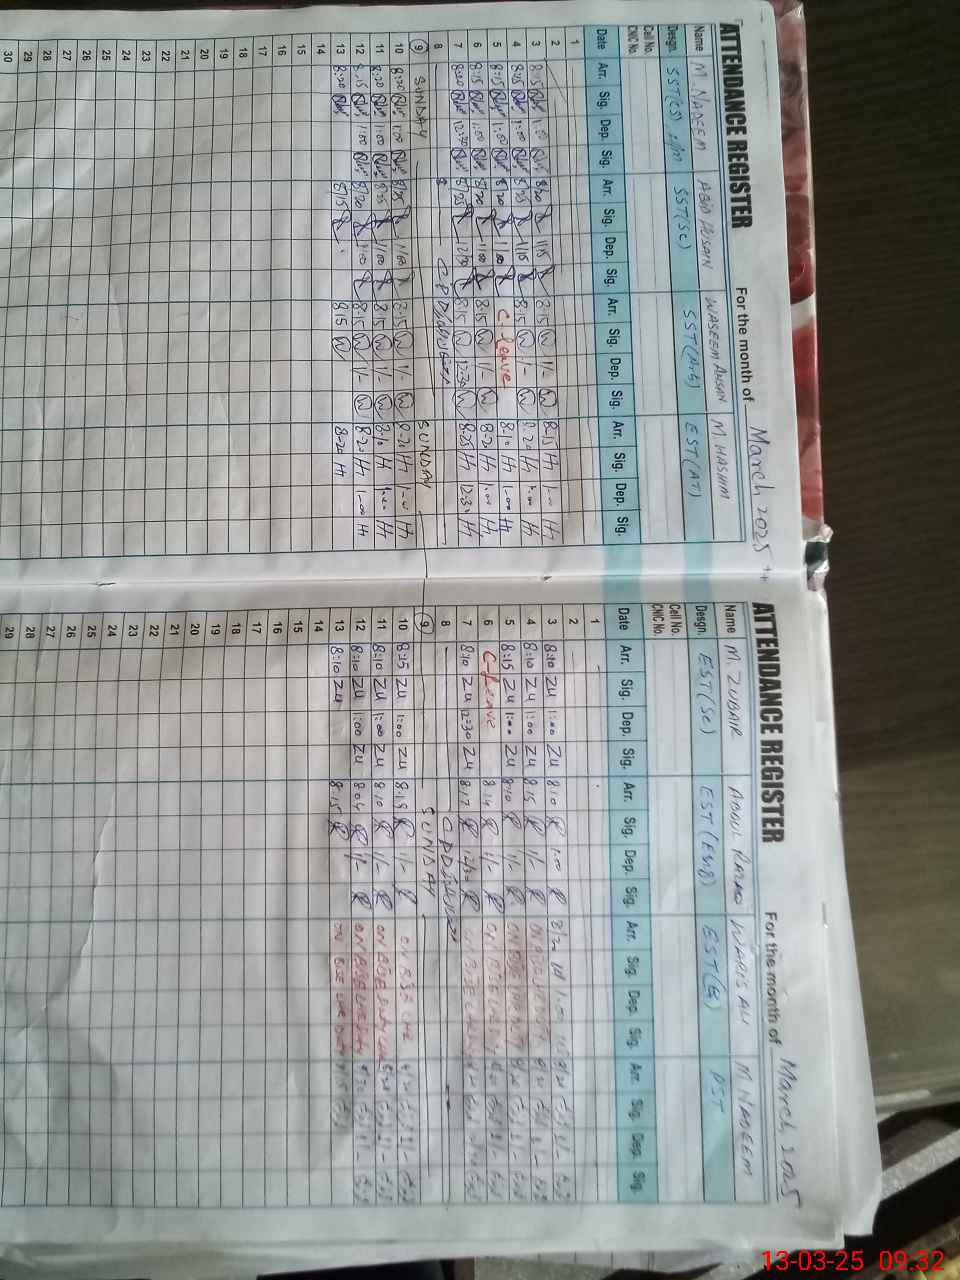 ATTENDANCE REGISTER For the month of March 2025
Name M. NADEEM ABID HUSAIN WASEEM AHSAN M. HASHIM
Desgn. SST(CS) H/M SST(Sc) SST(Arts) EST(AT)
Cell No.
CNIC No.
Date Arr. Sig. Dep. Sig. Arr. Sig. Dep. Sig. Arr. Sig. Dep. Sig. Arr. Sig. Dep. Sig.
1
2
3 8:15 1:00 8/20 1/15 8:15 W 1/- W 8-15 H 1-00 H
4 8:15 1:00 8/25 1/15 8:15 W 1/- W 8-20 H 1-00 H
5 8:15 1:00 8/20 1/00 C-leave 8-10 H 1-00 H
6 8:15 1:00 8/20 1/00 8:15 W 1/- W 8-20 H 1:00 H
7 8:20 12:30 8/25 12/30 8:15 W 12:30 W 8-25 H 12:30 H
8 CPD
9 SUNDAY SUNDAY
10 8:20 1:00 8/25 1/00 8:15 W 1/- W 8-20 H 1-00 H
11 8:20 1:00 8/25 1/00 8:15 W 1/- W 8-10 H 1:00 H
12 8:15 1:00 8/20 1:00 8:15 W 1/- W 8-20 H 1-00 H
13 8:20 8/15 8:15 W 8-20 H
14
15
16
17
18
19
20
21
22
23
24
25
26
27
28
29
30
ATTENDANCE REGISTER For the month of March, 2025
Name M. ZUBAIR ABDUL RAZAQ WARIS ALI M. NADEEM
Desgn. EST(Sc) EST(Eng) EST(G) PST
Cell No.
CNIC No.
Date Arr. Sig. Dep. Sig. Arr. Sig. Dep. Sig. Arr. Sig. Dep. Sig. Arr. Sig. Dep. Sig.
1
2
3 8:10 ZU 1:00 ZU 8:10 1:00
4 8:10 ZU 1:00 ZU 8:15 1/-
5 8:15 ZU 1:00 ZU 8:10 1/-
6 C-Leave 8:14 1/-
7 8:10 ZU 12:30 ZU 8:17 12/30
8 CPD
9 SUNDAY
10 8:15 ZU 1:00 ZU 8:15 1/- ON BISE LHR
11 8:10 ZU 1:00 ZU 8:10 1/- ON BISE Duty LHR
12 8:10 ZU 1:00 ZU 8:04 1/- ON BISE LHR Duty
13 8:10 ZU 8:15 ON BISE LHR Duty
14
15
16
17
18
19
20
21
22
23
24
25
26
27
28
29
13-03-25 09:32